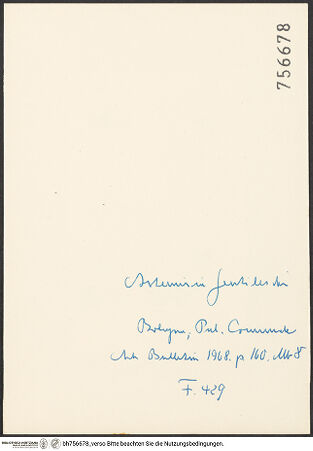 756678
Artemisia Gentileschi
Bologna, Pal. Comunale
Art Bulletin 1968. p 160. Abb 8
F. 429
BIBLIOTHECA HERTZIANA
bh756678_verso Bitte beachten Sie die Nutzungsbedingungen.